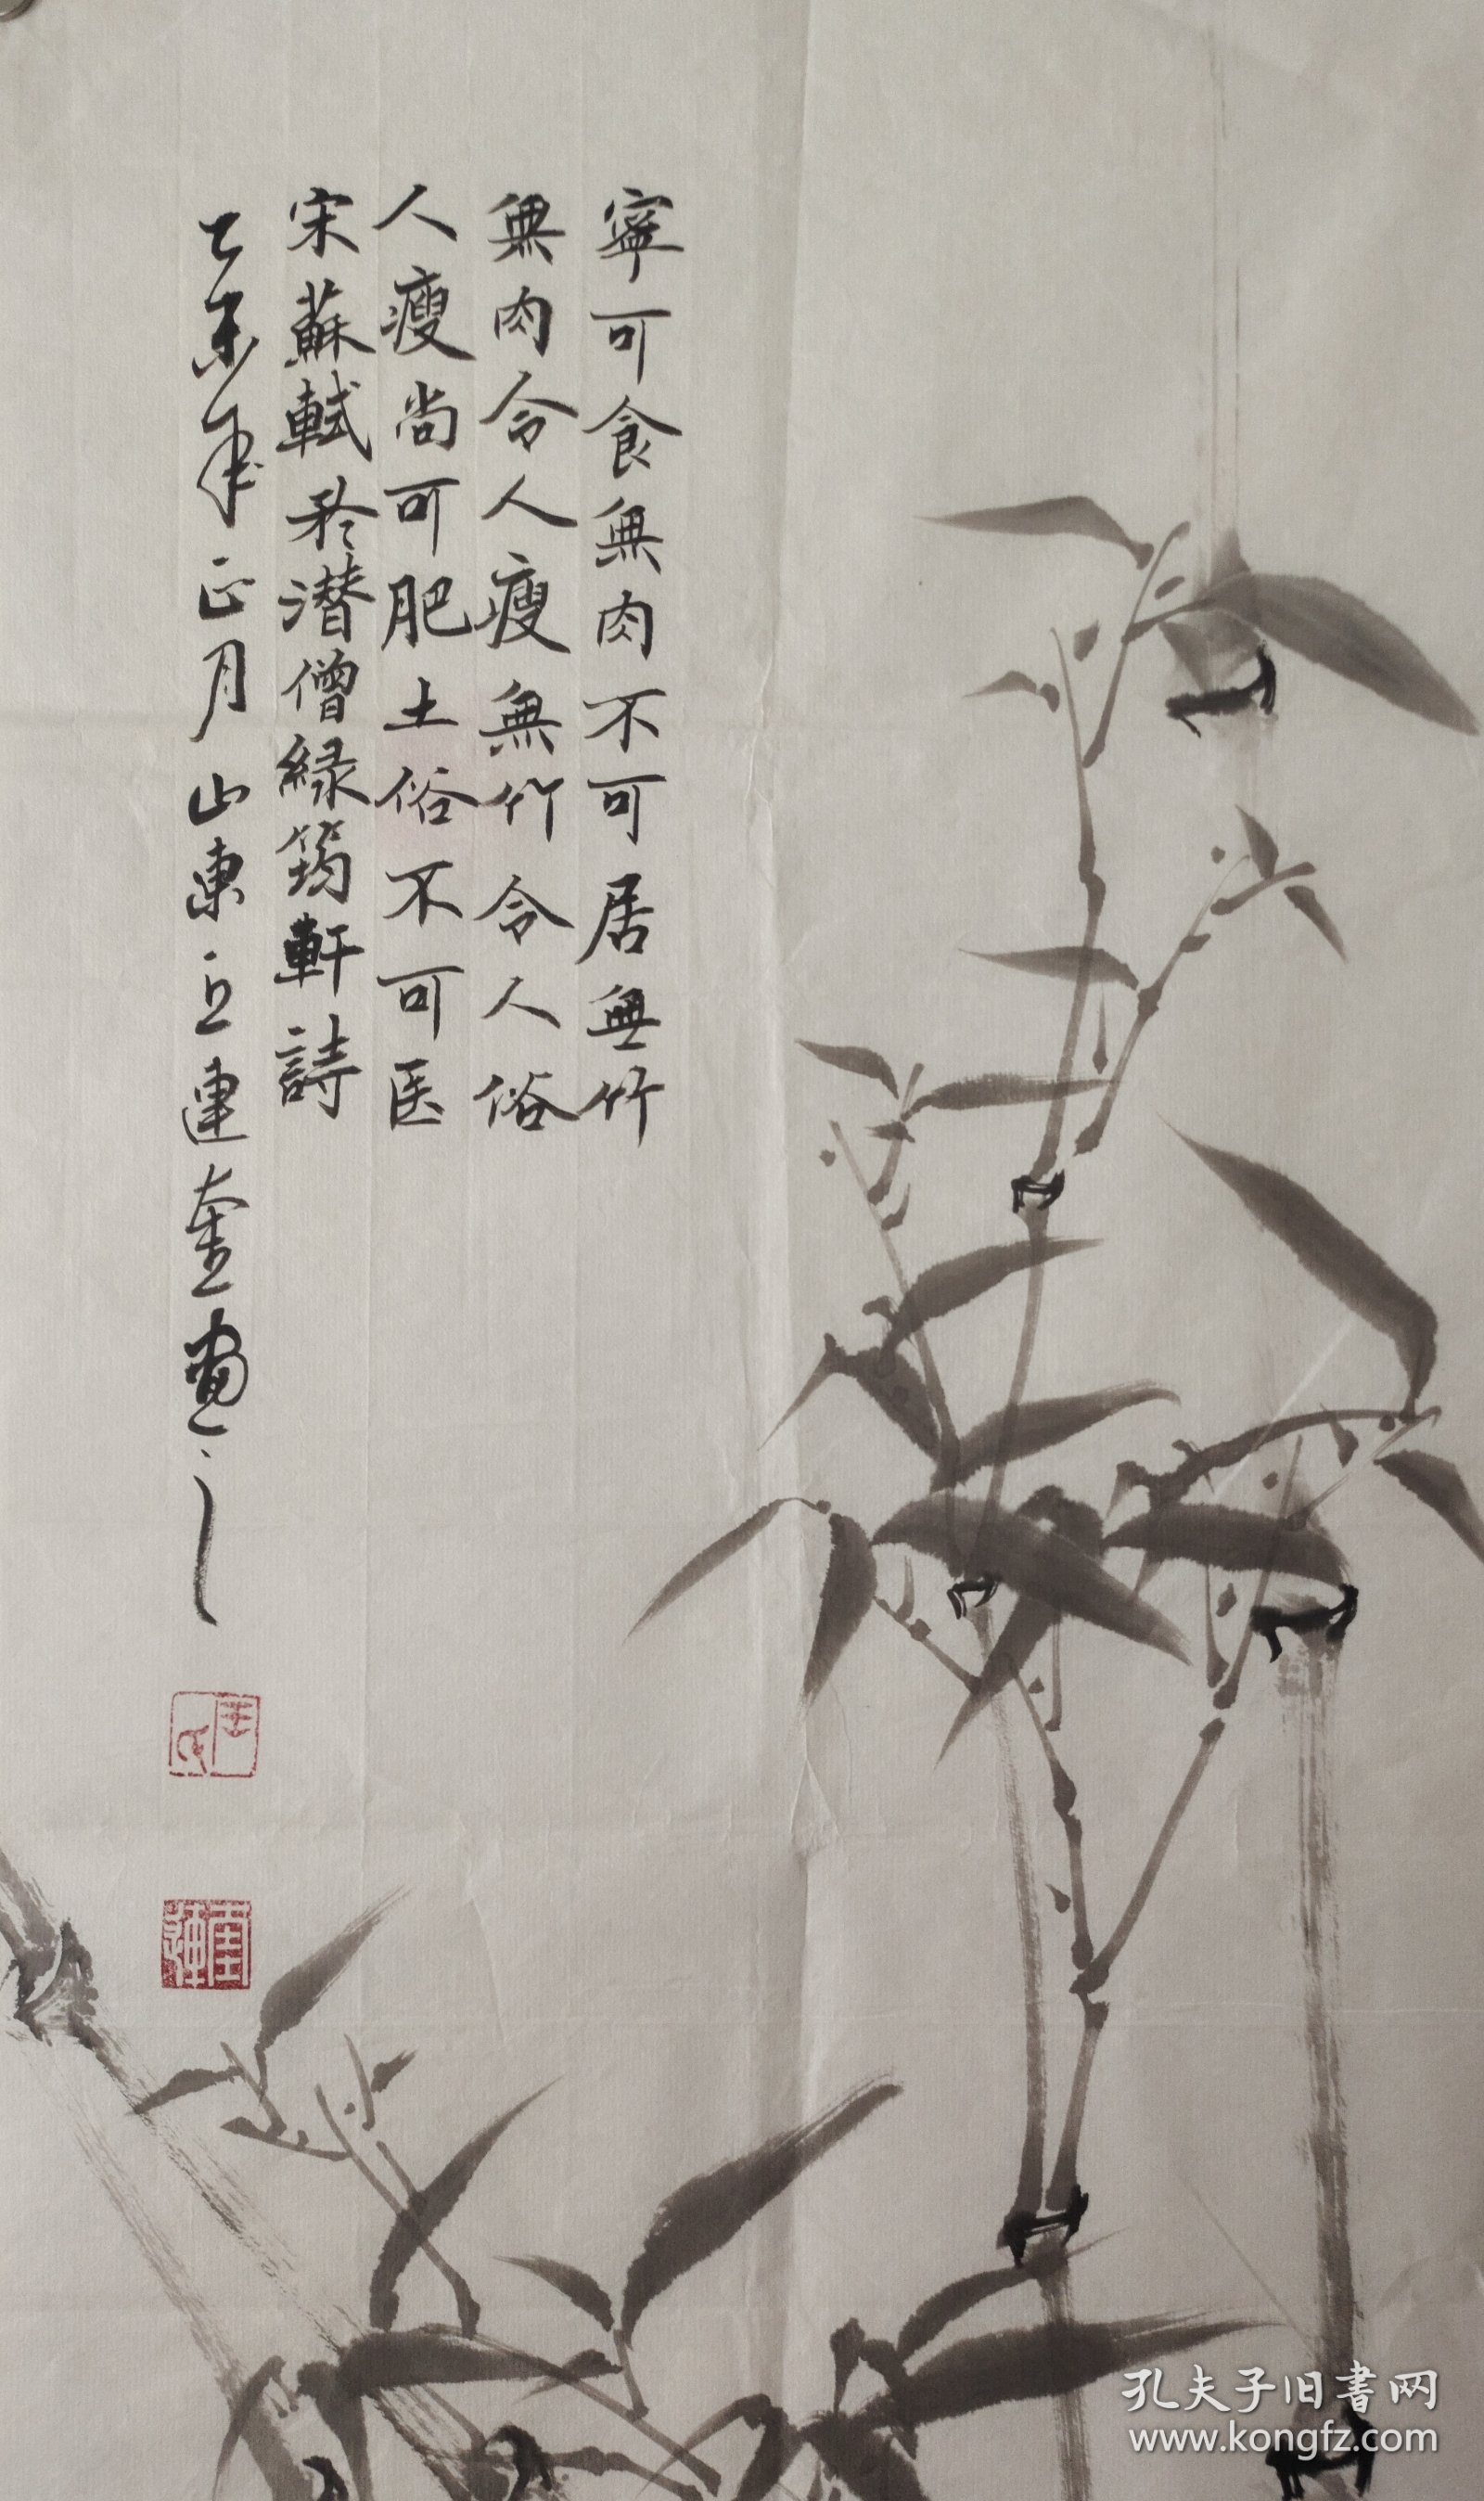 寧可食無肉不可居無竹
無肉令人瘦無竹令人俗
人瘦尚可肥土俗不可医
宋蘇軾於潜僧緑筠軒詩
乙未年正月山東丘連奎畫之
孔夫子旧書网
www.kongfz.com